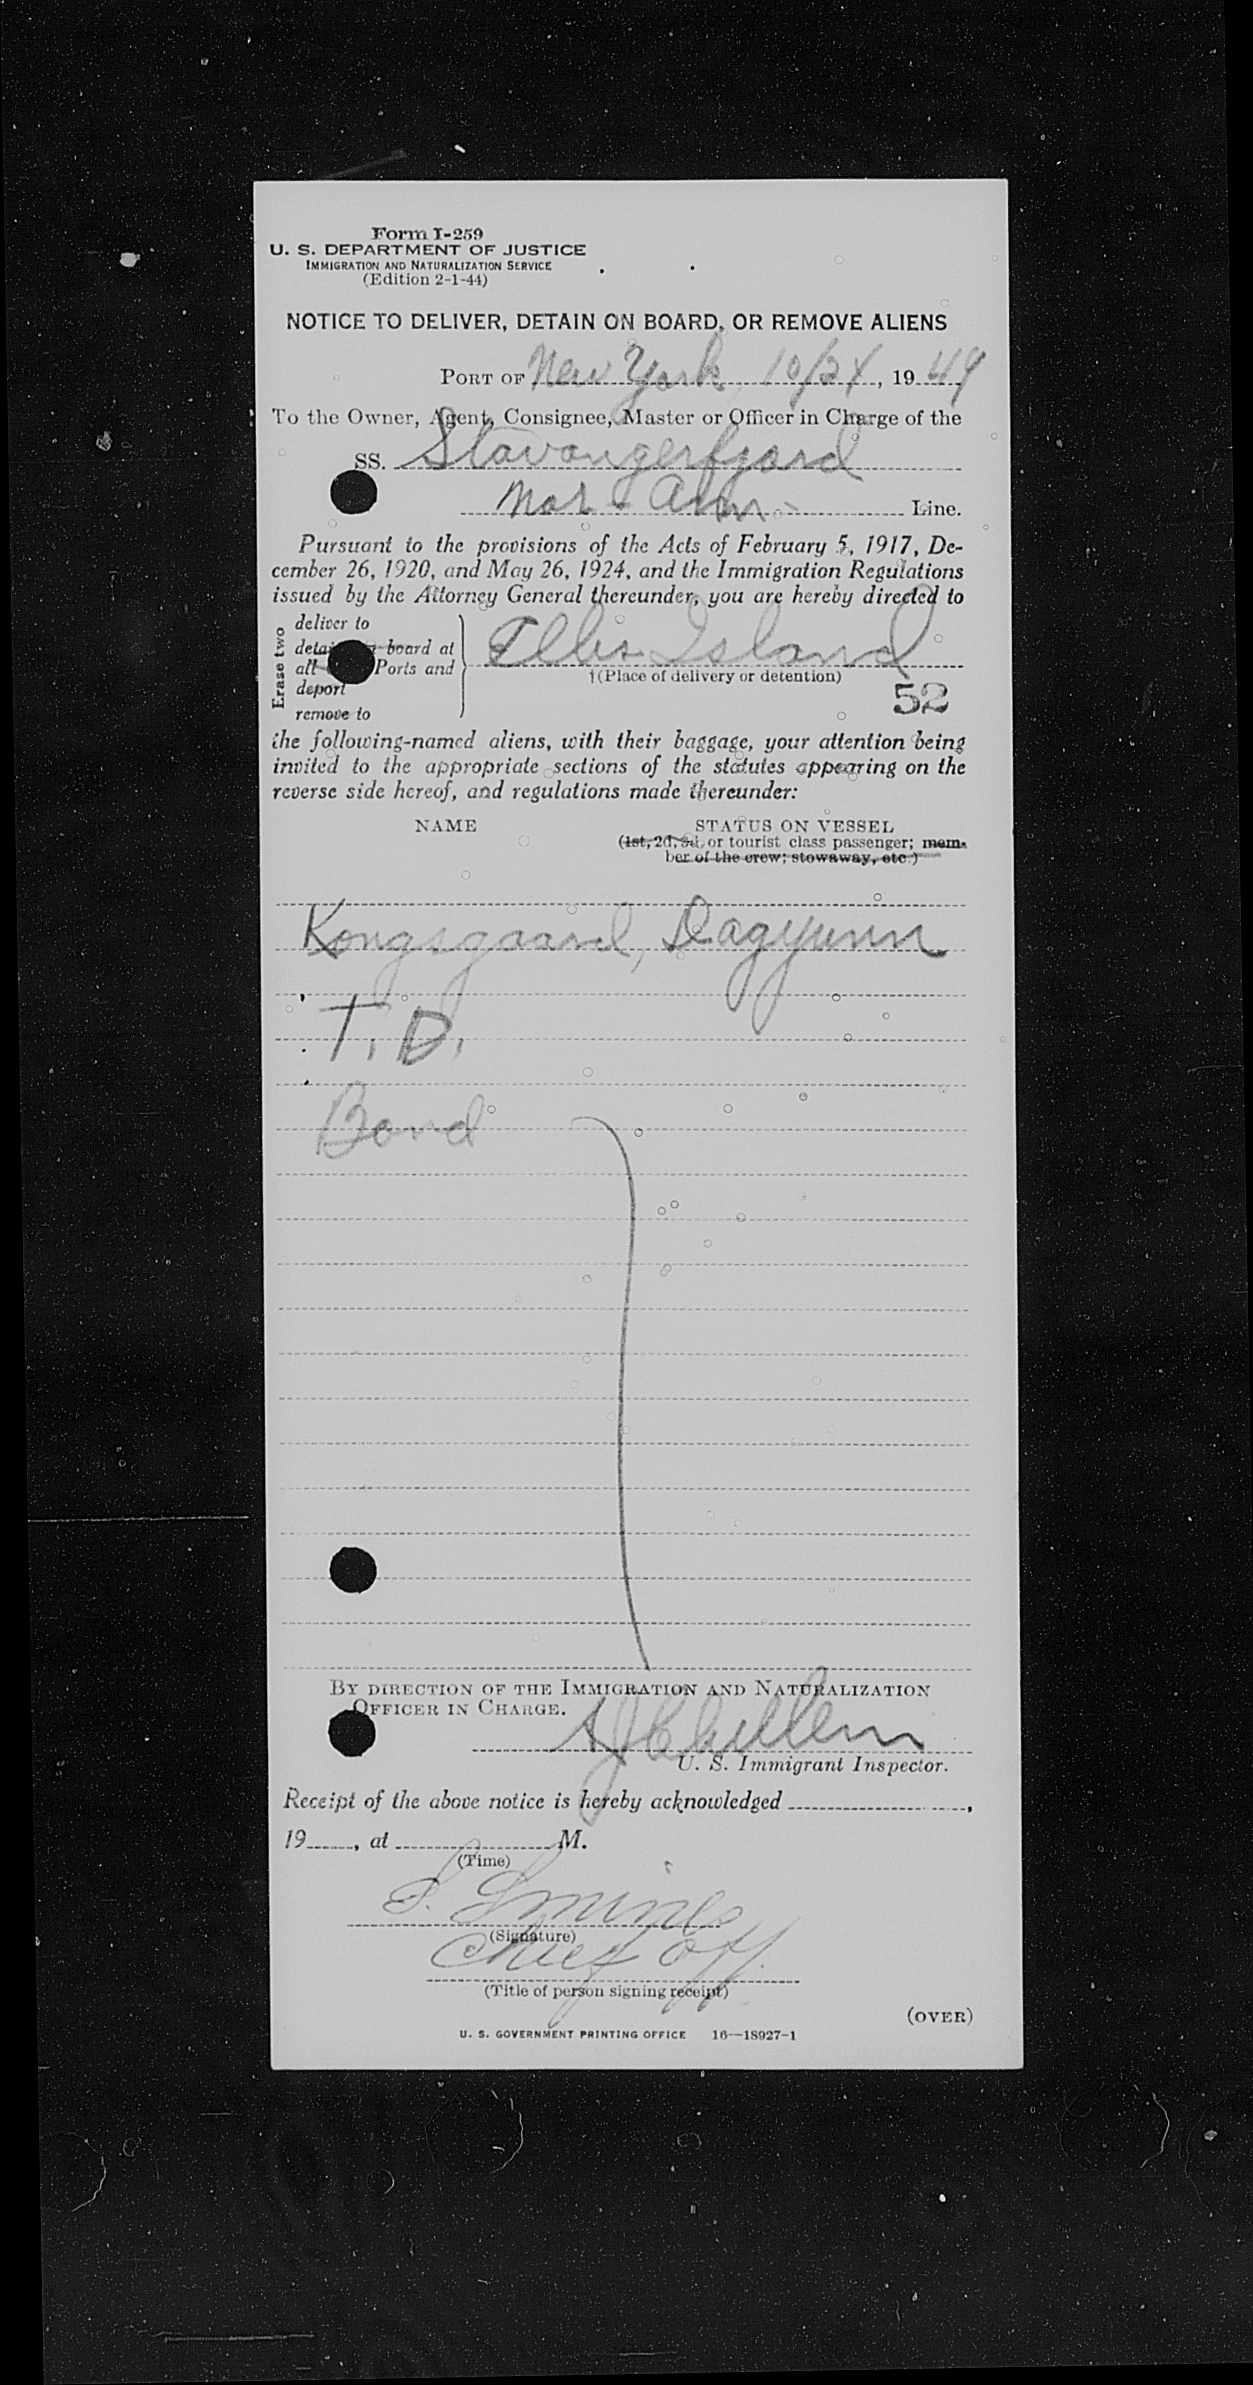 Form I-259
U. S. DEPARTMENT OF JUSTICE
IMMIGRATION AND NATURALIZATION SERVICE
(Edition 2-1-44)
NOTICE TO DELIVER, DETAIN ON BOARD, OR REMOVE ALIENS
PORT OF New York, 10/24, 1949
To the Owner, Agent, Consignee, Master or Officer in Charge of the
SS. Stavangerfjord
Nor - Am - Line.
Pursuant to the provisions of the Acts of February 5, 1917, De-
cember 26, 1920, and May 26, 1924, and the Immigration Regulations
issued by the Attorney General thereunder, you are hereby directed to
Erase two
deliver to
board at
all Ports and
deport
remove to
Ellis Island
†(Place of delivery or detention)
52
the following-named aliens, with their baggage, your attention being
invited to the appropriate sections of the statutes appearing on the
reverse side hereof, and regulations made thereunder:
NAME STATUS ON VESSEL
(1st, 2d, 3d, or tourist class passenger; mem-
ber of the crew; stowaway, etc.)
Kongsgaard, Dagyunn
T. D.
Bond
BY DIRECTION OF THE IMMIGRATION AND NATURALIZATION
OFFICER IN CHARGE.
U. S. Immigrant Inspector.
Receipt of the above notice is hereby acknowledged ,
19 , at M.
(Time)
(Signature)
Chief Off.
(Title of person signing receipt)
(OVER)
U. S. GOVERNMENT PRINTING OFFICE 16—18927-1